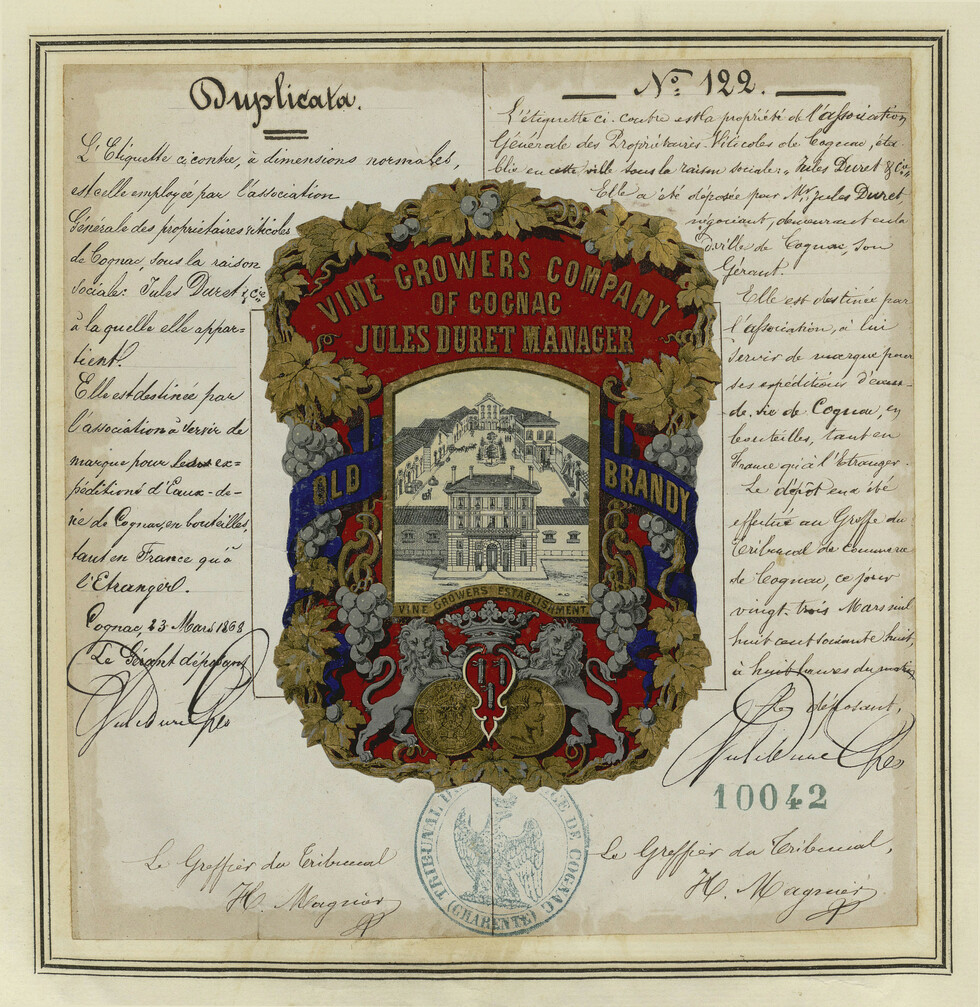 Duplicata.
L'Etiquette ci contre, à dimensions normales,
est celle employée par l'association
Générale des propriétaires viticoles
de Cognac, sous la raison
sociale: Jules Duret & Cie
à la quelle elle appar-
tient.
Elle est destinée par
l'association à servir de
marque pour ses ex=
péditions d'Eaux-de-
vie de Cognac, en bouteilles,
tant en France qu'à
l'Etranger.
Cognac, 23 Mars 1868
Le Gérant déposant
Jules Duret
Le Greffier du Tribunal
H. Magnier
No. 122.
L'étiquette ci-contre est la propriété de l'association
Générale des Propriétaires Viticoles de Cognac, éta
blie en cette ville sous la raison sociale: "Jules Duret & Cie"
Elle a été déposée par Mr. Jules Duret
négociant, demeurant en la
ville de Cognac, son
Gérant.
Elle est destinée par
l'association, à lui
servir de marque pour
ses expéditions d'eaux-
de-vie de Cognac, en
bouteilles, tant en
France qu'à l'Etranger.
Le dépôt en a été
effectué au Greffe du
Tribunal de Commerce
de Cognac, ce jour
vingt-trois Mars mil
huit cent soixante huit,
à huit heures du matin
Le déposant,
Jules Duret
10042
Le Greffier du Tribunal,
H. Magnier
VINE GROWERS COMPANY
OF COGNAC
JULES DURET MANAGER
OLD BRANDY
VINE GROWERS ESTABLISHMENT
TRIBUNAL DE COMMERCE DE COGNAC
(CHARENTE)